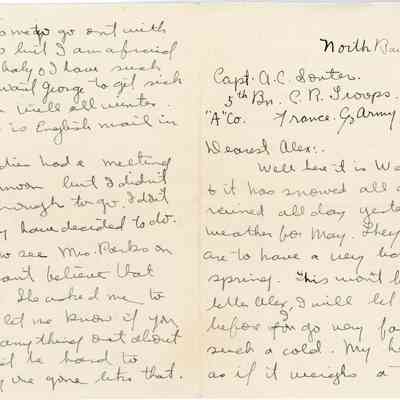 s me to go out with
but I am afraid
I have such
wait George to get sick
well all winter.
is English mail in
dies had a meeting
noon but I didn't
enough to go. I don't
y have decided to do.
see Mrs. Parks on
can't believe that
He asked me to
let me know if you
anything out about
d be hard to
one gone like that.
North Ba
Capt. A.C. Souter.
5th Bn. C. R. Troops.
"A" Co. France. Army
Dearest Alex:-
Well here it is We
& it has snowed all d
rained all day yeste
weather for May. They
are to have a very ba
spring. This won't b
letter Alex, I will let
before I go very fa
such a cold. My h
as if it weighs a